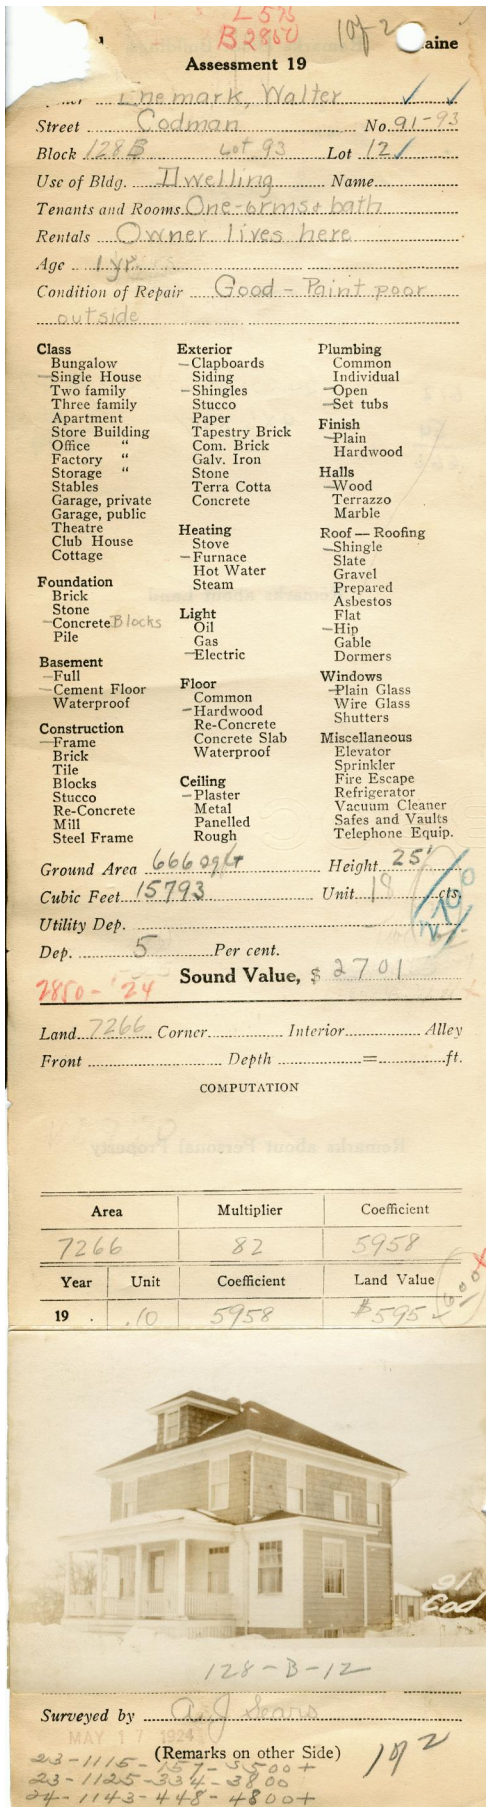 L 575
B 2850
1 of 2
aine
Assessment 19
Enemark, Walter
Street Codman No. 91-93
Block 128B Lot 93 Lot 12
Use of Bldg. Dwelling Name
Tenants and Rooms One-6rms + bath
Rentals Owner lives here
Age 1 yr
Condition of Repair Good - Paint poor
outside
Class
Bungalow
Single House
Two family
Three family
Apartment
Store Building
Office "
Factory "
Storage "
Stables
Garage, private
Garage, public
Theatre
Club House
Cottage
Foundation
Brick
Stone
Concrete Blocks
Pile
Basement
Full
Cement Floor
Waterproof
Construction
Frame
Brick
Tile
Blocks
Stucco
Re-Concrete
Mill
Steel Frame
Exterior
Clapboards
Siding
Shingles
Stucco
Paper
Tapestry Brick
Com. Brick
Galv. Iron
Stone
Terra Cotta
Concrete
Heating
Stove
Furnace
Hot Water
Steam
Light
Oil
Gas
Electric
Floor
Common
Hardwood
Re-Concrete
Concrete Slab
Waterproof
Ceiling
Plaster
Metal
Panelled
Rough
Plumbing
Common
Individual
Open
Set tubs
Finish
Plain
Hardwood
Halls
Wood
Terrazzo
Marble
Roof — Roofing
Shingle
Slate
Gravel
Prepared
Asbestos
Flat
Hip
Gable
Dormers
Windows
Plain Glass
Wire Glass
Shutters
Miscellaneous
Elevator
Sprinkler
Fire Escape
Refrigerator
Vacuum Cleaner
Safes and Vaults
Telephone Equip.
Ground Area 666 sq ft Height 25'
Cubic Feet 15793 Unit 18 cts.
2700
Utility Dep.
Dep. 5 Per cent.
Sound Value, $ 2701
2850-'24
Land 7266 Corner Interior Alley
Front Depth = ft.
COMPUTATION
Area Multiplier Coefficient
7266 82 5958
Year Unit Coefficient Land Value
19 .10 5958 $595
600
91
Cod
128-B-12
Surveyed by A. J. Sears
MAY 17 1924
(Remarks on other Side)
1 of 2
23-1115-157-5500+
23-1125-334-3800
24-1143-448-4800+